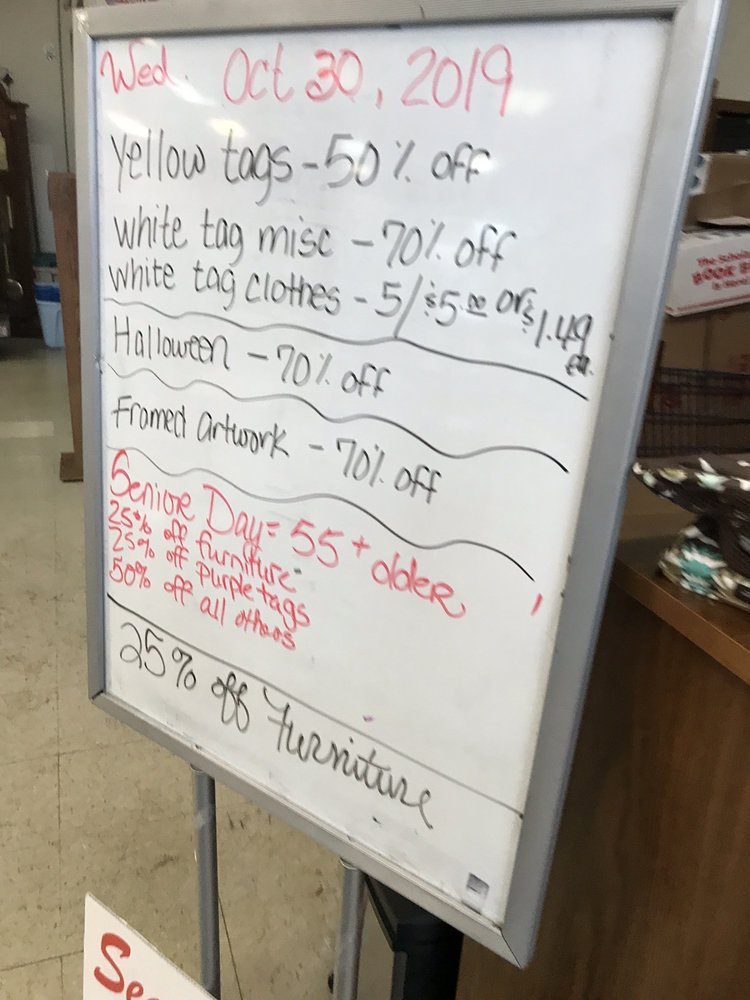 Wed. Oct 30, 2019
Yellow tags - 50% off
white tag misc - 70% off
white tag clothes - 5/$5.00 or $1.49 ea.
Halloween - 70% off
Framed artwork - 70% off
Senior Day = 55 + older
25% off furniture
25% off Purple tags
50% off all others
25% off Furniture
BOOK